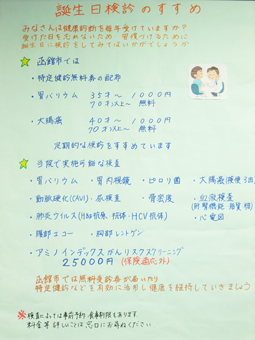 誕生日検診のすすめ
みなさんは健康診断を毎年受けていますか?
受けた日を忘れないため 習慣づけるために
誕生日に検診をしてみてはいかがでしょうか
函館市では
・特定健診無料券の配布
・胃バリウム 35才~ 1000円
70才以上~ 無料
・大腸癌 40才~ 1000円
70才以上~ 無料
定期的な検診をすすめています
当院で実施可能な検査
・胃バリウム ・胃内視鏡 ・ピロリ菌 ・大腸癌(検便2回)
・動脈硬化(CAVI) ・尿検査 ・骨密度 ・血液検査
・肺炎ウイルス(HBs抗原、抗体・HCV抗体) ・心電図
・腹部エコー ・胸部レントゲン
・アミノインデックスがんリスクスクリーニング
25000円 (保険適応外)
函館市では無料受診券が届いたり
特定健診などを有効に活用し健康を維持していきましょう
※検査によっては事前予約、食事制限もあります
料金等詳しいことは窓口にお尋ねください